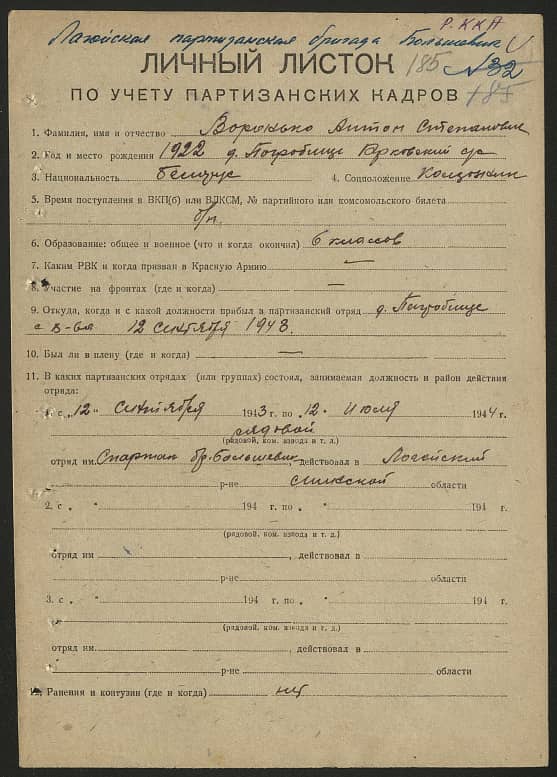 Р.ККА
Логойская партизанская бригада Большевик
ЛИЧНЫЙ ЛИСТОК 185 №32
ПО УЧЕТУ ПАРТИЗАНСКИХ КАДРОВ 185
1. Фамилия, имя и отчество Воронько Антон Степанович
2. Год и место рождения 1922 д. Погроблище
3. Национальность белорус 4. Соцположение Колхозник
5. Время поступления в ВКП(б) или ВЛКСМ, № партийного или комсомольского билета
б/п.
6. Образование: общее и военное (что и когда окончил) 6 классов
7. Каким РВК и когда призван в Красную Армию —
8. Участие на фронтах (где и когда) —
9. Откуда, когда и с какой должности прибыл в партизанский отряд д. Погроблище
12 сентября 1943.
10. Был ли в плену (где и когда) —
11. В каких партизанских отрядах (или группах) состоял, занимаемая должность и район действия
отряда:
1. с „12" сентября 1943 г. по „12„ Июля 1944 г.
рядовой
(рядовой, ком. взвода и т. д.)
отряд им. Спартак бр. Большевик, действовал в Логойский
р-не Минской области
2. с „ " 194 г. по „ " 194 г.
(рядовой, ком. взвода и т. д.)
отряд им , действовал в
р-не области
3. с „ " 194 г. по „ " 194 г.
(рядовой, ком. взвода и т. д.)
отряд им. , действовал в
р-не области
12. Ранения и контузии (где и когда) нет